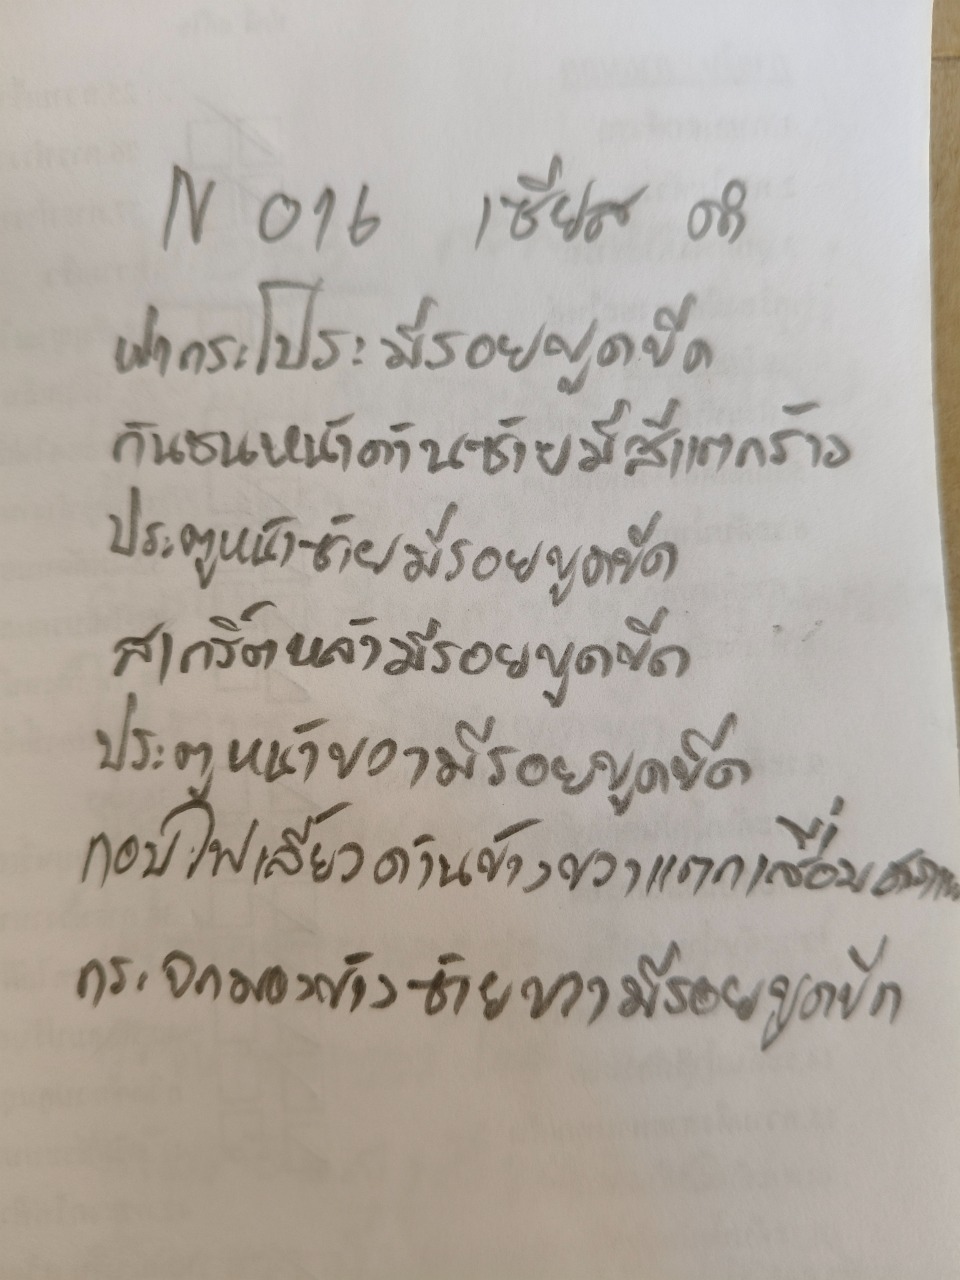 N 016 เซียส ดำ
ฝากระโปรงมีรอยขูดขีด
กันชนหน้าด้านซ้ายมีสีแตกร้าว
ประตูหน้าซ้ายมีรอยขูดขีด
สเกริ์ตหลังมีรอยขูดขีด
ประตูหน้าขวามีรอยขูดขีด
กอบไฟเลี้ยวด้านข้างขวาแตกเสื่อม
กระจกมองข้างซ้ายขวามีรอยขูดขีด